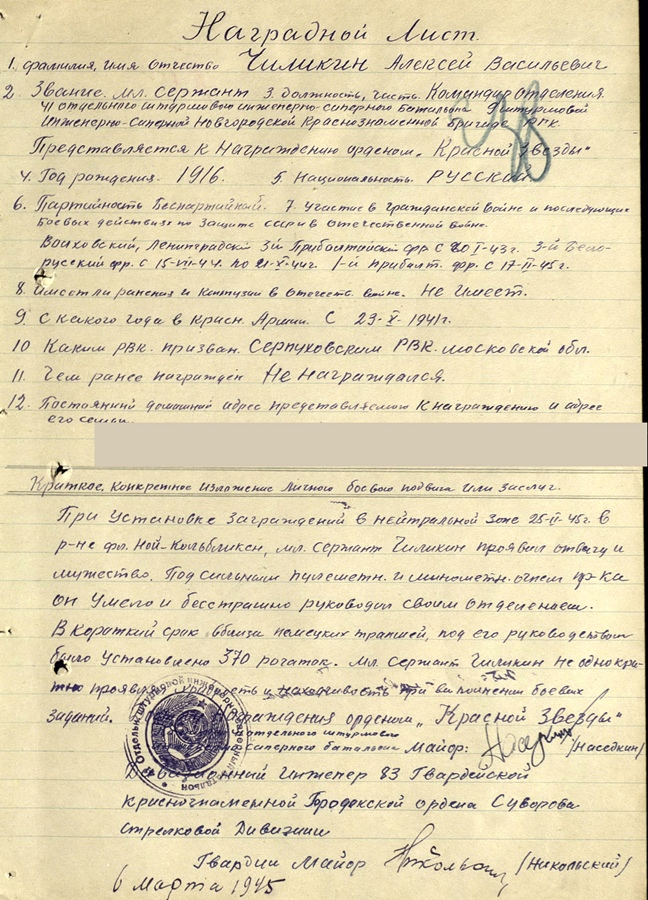 Наградной Лист.
1. Фамилия, имя отчество Чиликин Алексей Васильевич
2 Звание. мл. сержант 3. Должность, часть. Командир отделения.
41 отдельного штурмового инженерно-саперного Батальона Штурмовой
Инженерно-Саперной Новгородской Краснознаменной бригаде РГК.
Представляется к Награждению орденом "Красной Звезды"
4. Год рождения. 1916. 5. Национальность. Русский
6. Партийность Беспартийный. 7. участие в гражданской войне и последующих
боевых действиях по защите ссср в отечественной войне.
Волховский, Ленинградский 3й Прибалтийский фр. с 20-I-43г. 3-й Бело-
русский фр. с 15-VII-44. по 21-X-44г. 1-й прибалт. фр. с 17-II-45г.
8. имеет ли ранения и контузии в отечеств. войне. Не имеет.
9. С какого года в красн. Армии. С 29-X-1941г.
10 Каким РВК. призван. Серпуховским РВК. московской обл.
11. Чем ранее награжден Не награждался.
12. Постоянный домашний адрес представляемого к награждению и адрес
его семьи.
Краткое, конкретное изложение личного боевого подвига или заслуг.
При установке заграждений в нейтральной зоне 25-II-45г. в
р-не фл. Ной-Кольбликен, мл. сержант Чиликин проявил отвагу и
мужество. Под сильным пулеметн. и минометн. огнем пр-ка
он умело и бесстрашно руководил своим отделением.
В короткий срок вблизи немецких траншей, под его руководством
было установлено 370 рогаток. Мл. сержант Чиликин не однокра-
тно проявил и находчивость при выполнении боевых
заданий. награждения орденом "Красной Звезды"
отдельного штурмового
саперного батальона Майор: /Наседкин/
Дивизионный Инженер 83 Гвардейской
краснознаменной Городокской ордена Суворова
стрелковой Дивизии
Гвардии Майор /Никольский/
6 Марта 1945